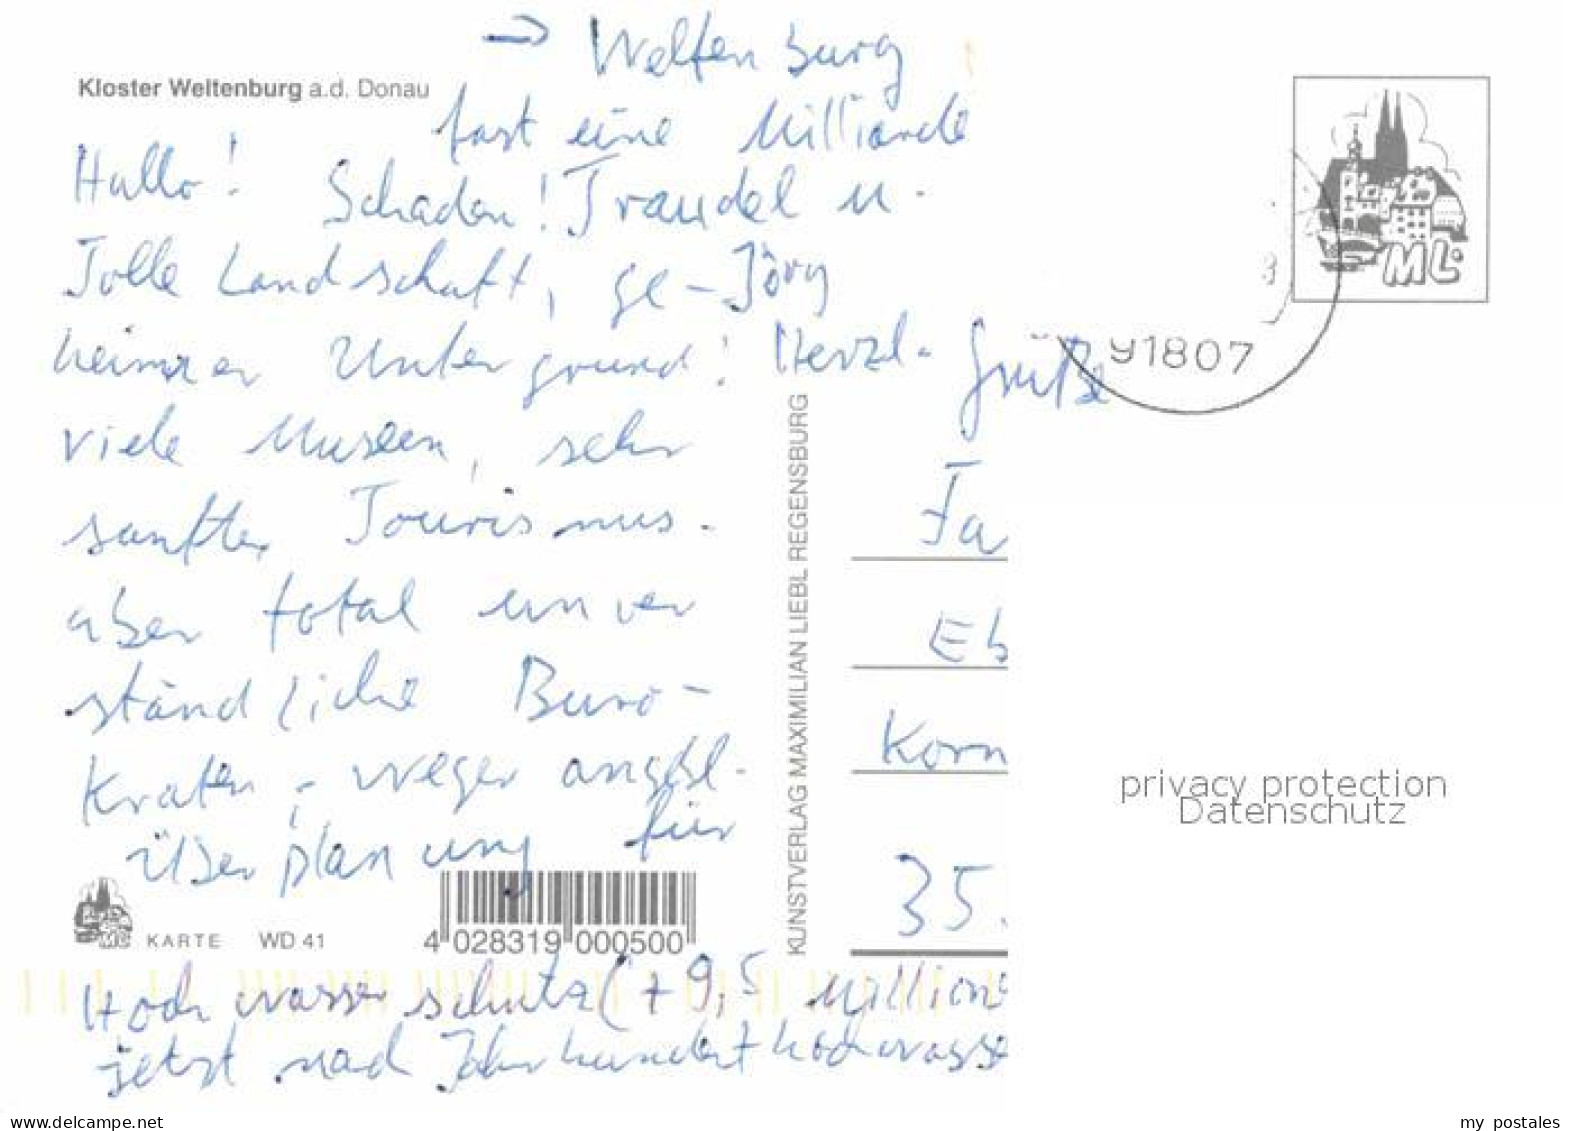 → Weltenburg
Kloster Weltenburg a.d. Donau
fast eine Milliarde
Hallo! Schaden! Traudel u.
Tolle Landschaft, ge- Jörg
heimer Untergrund! Herzl. Grüße
viele Museen, sehr
sanfter Tourismus.
aber total unver
ständliche Büro-
kraten, - wegen angebl.
Überplanung für
KARTE WD 41
4 028319 000500
Hochwasserschutz (+ 9,5 Million
jetzt nach Jahrhunderthochwasse
KUNSTVERLAG MAXIMILIAN LIEBL REGENSBURG
ML
91807
Fa
Eb
Korn
35.
privacy protection
Datenschutz
www.delcampe.net
my postales